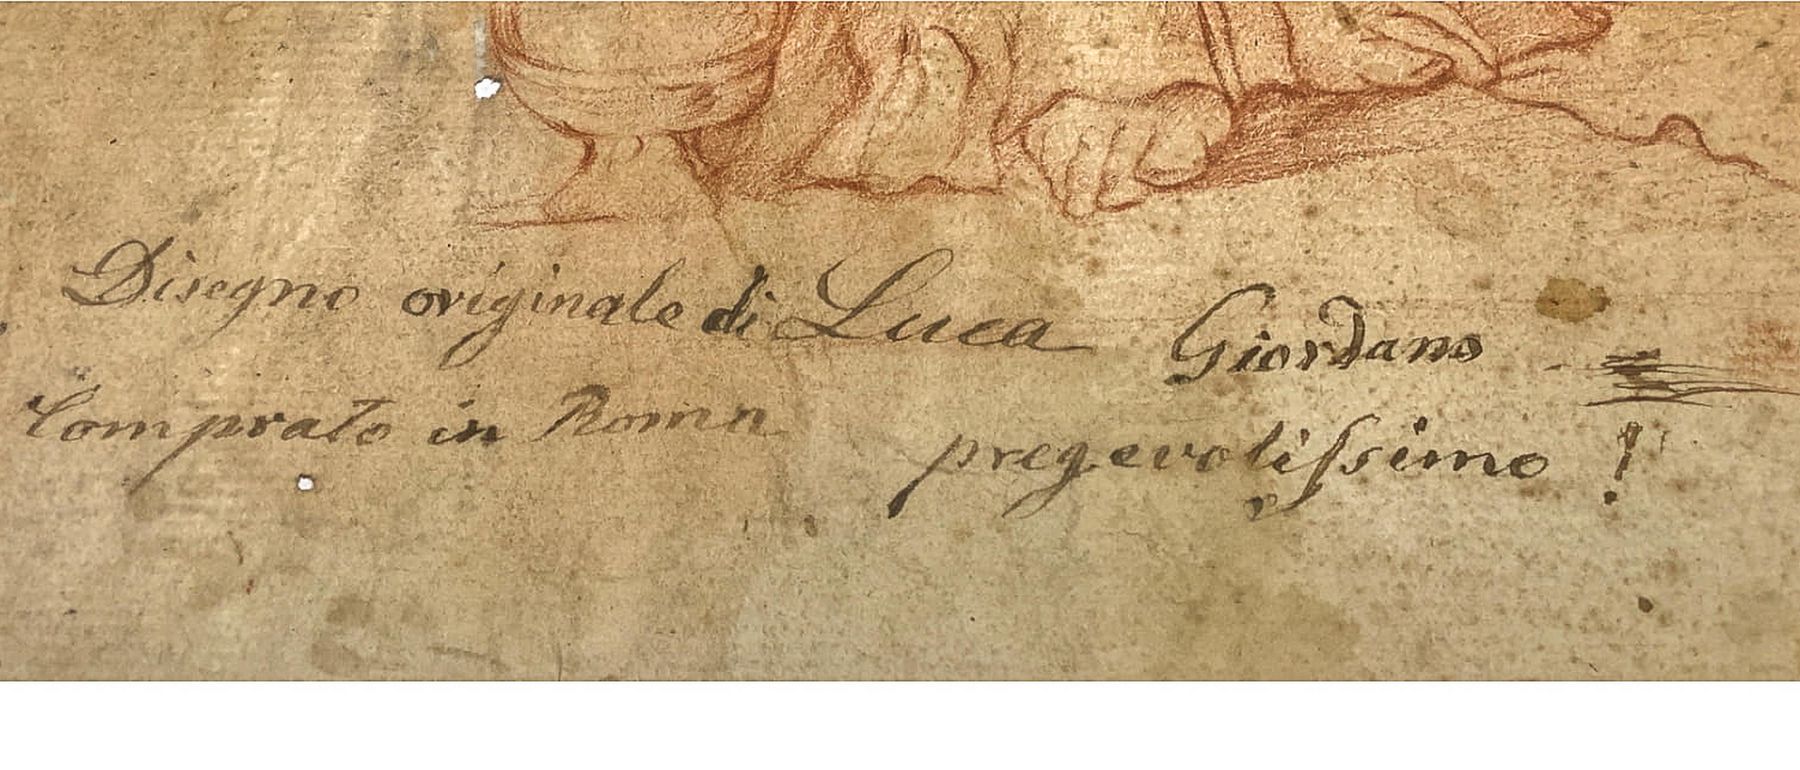 Disegno originale di Luca Giordano
Comprato in Roma pregevolissimo !